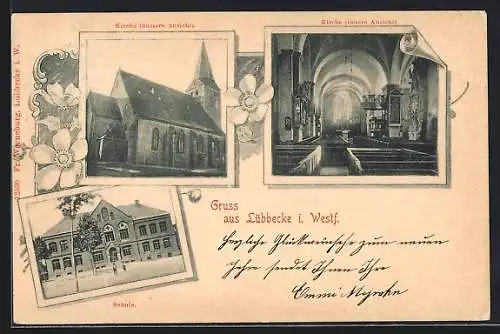 Kirche (äussere Ansicht).
Kirche (innere Ansicht)
2300 Fr. Werneburg, Lübbecke i. W.
Gruss
aus Lübbecke i. Westf.
Herzliche Glückwünsche zum neuen
Jahre sendet Ihnen Ihre
Schule.